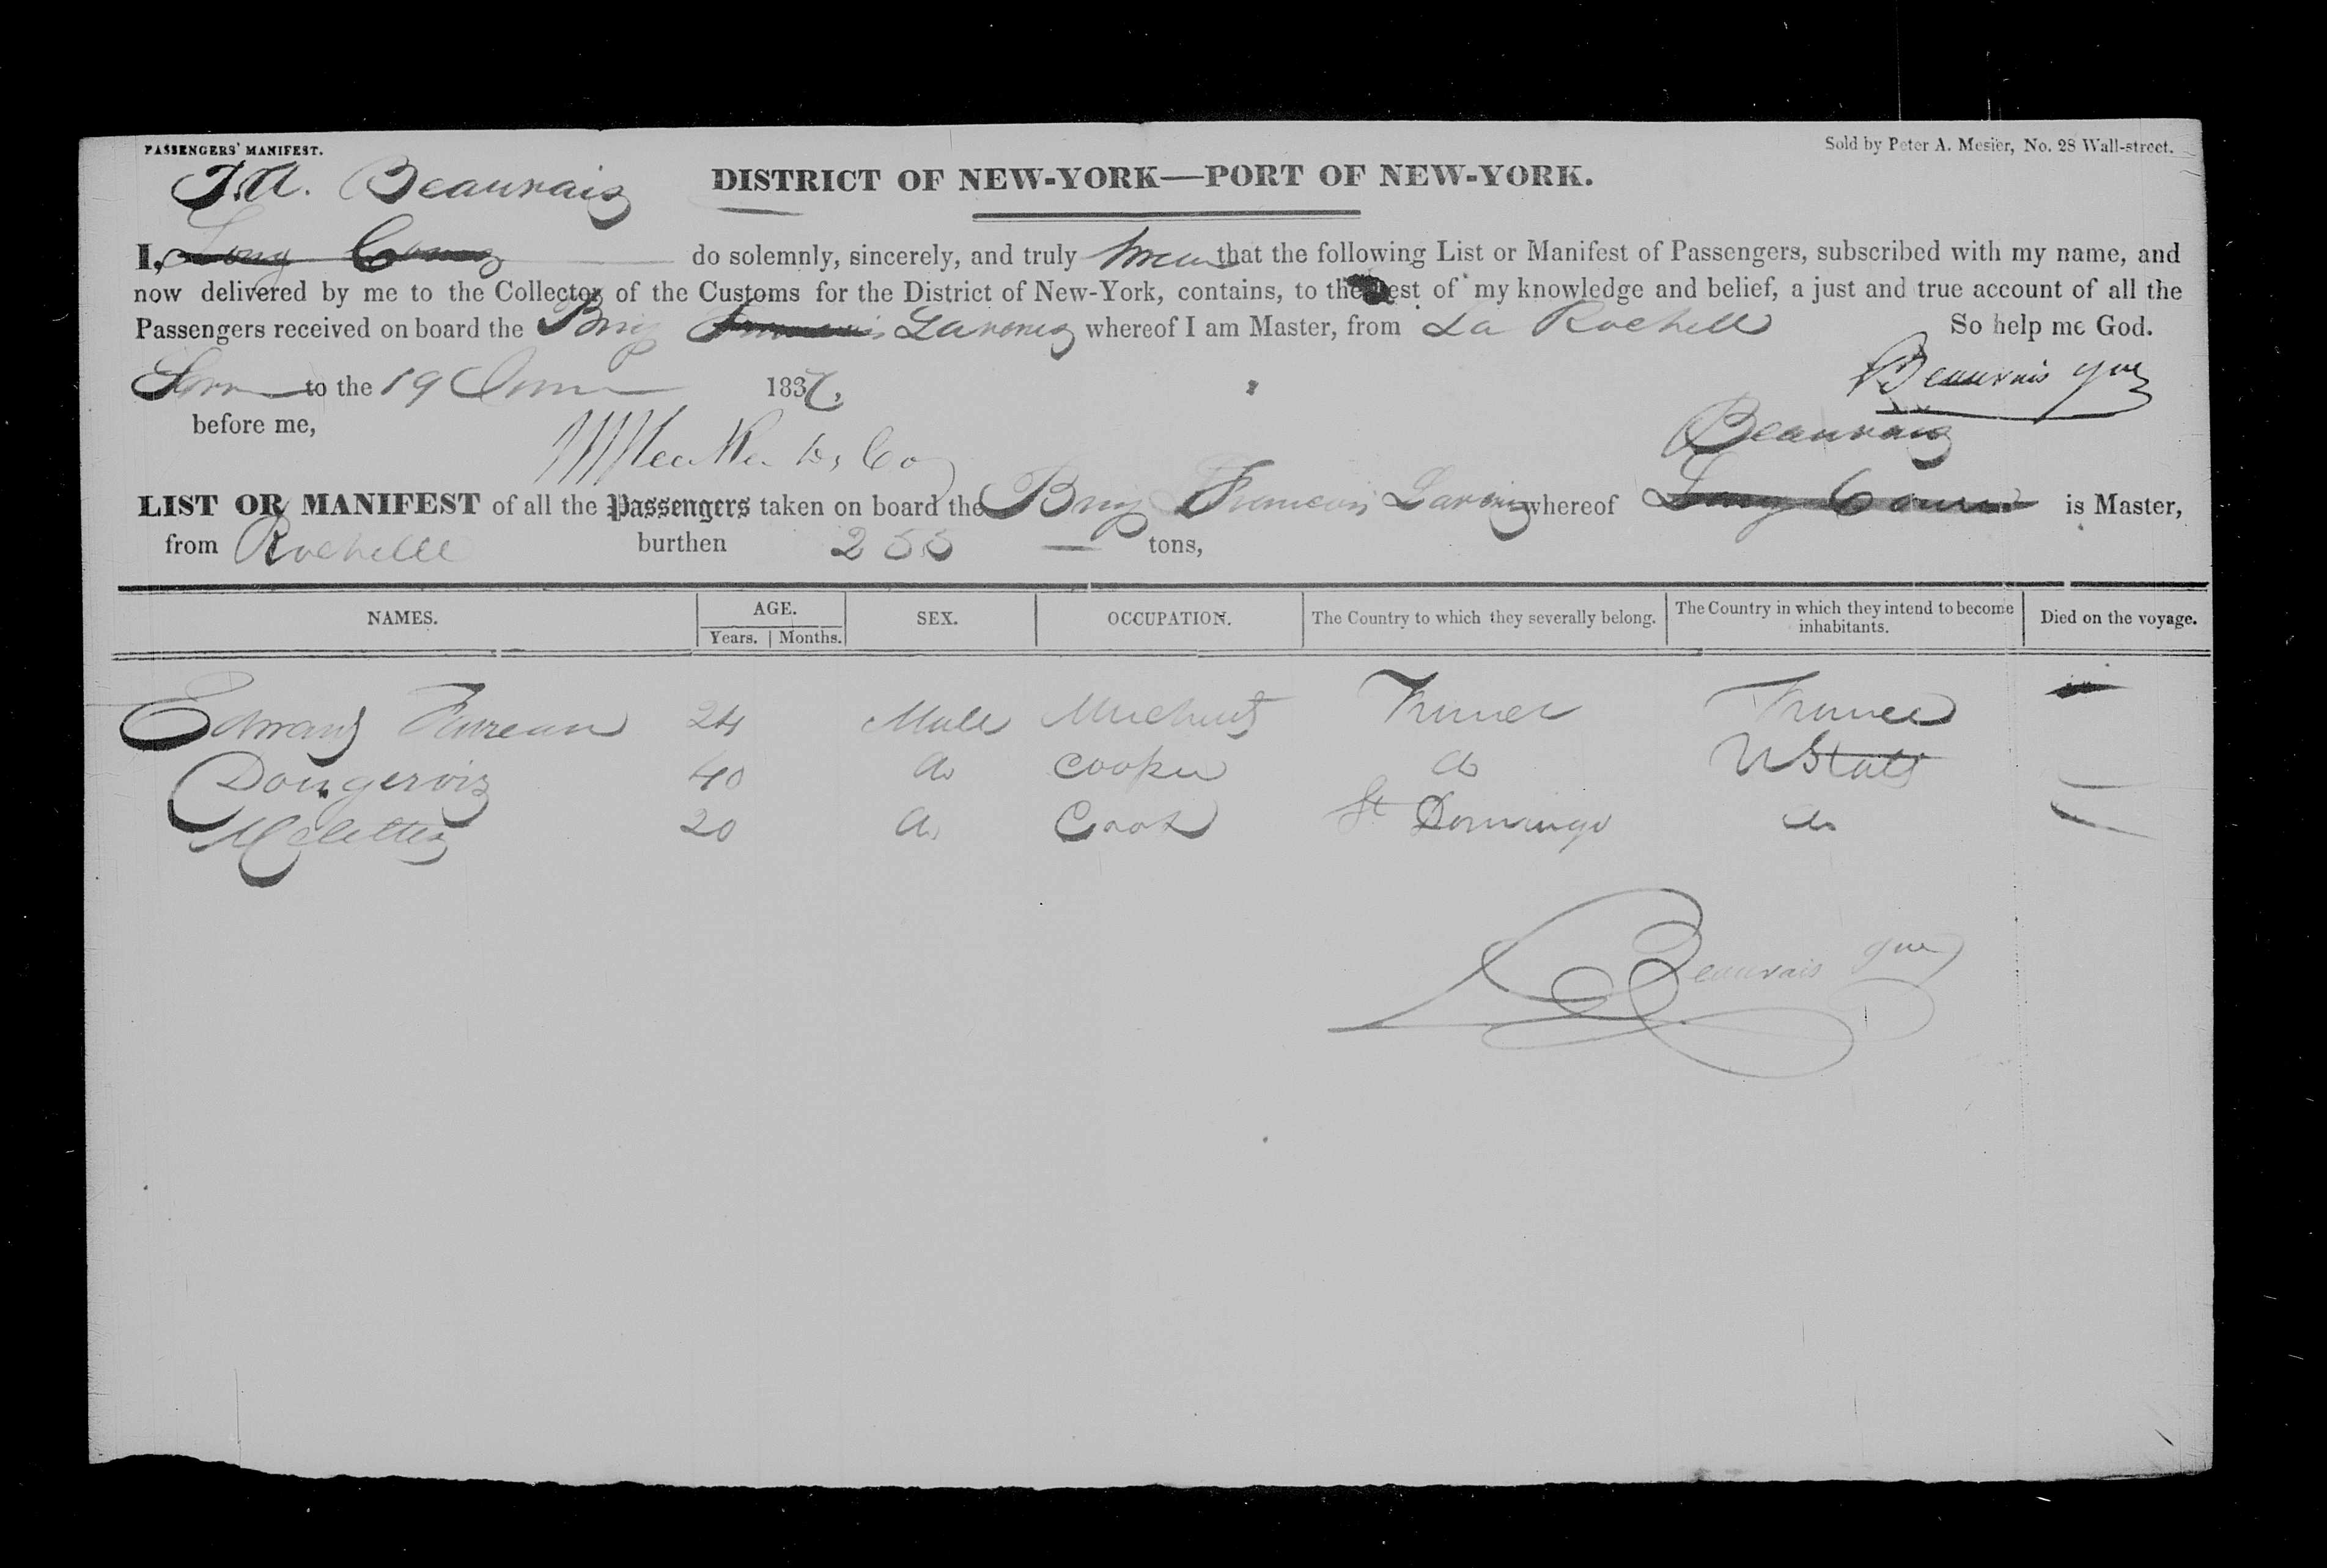 PASSENGERS' MANIFEST.
Sold by Peter A. Mesier, No. 28 Wall-street.
J.A. Beauvais
DISTRICT OF NEW-YORK—PORT OF NEW-YORK.
I, do solemnly, sincerely, and truly that the following List or Manifest of Passengers, subscribed with my name, and
now delivered by me to the Collector of the Customs for the District of New-York, contains, to the best of my knowledge and belief, a just and true account of all the
Passengers received on board the Brig whereof I am Master, from La Rochelle So help me God.
to the 19 183 Beauvais
before me,
Beauvais
LIST OR MANIFEST of all the Passengers taken on board the Brig whereof is Master,
from Rochelle burthen 255 tons,
NAMES. AGE. Years. Months. SEX. OCCUPATION. The Country to which they severally belong. The Country in which they intend to become inhabitants. Died on the voyage.
24 Male France France
40 Cooper do U States
20 Cook St Domingo do
Beauvais